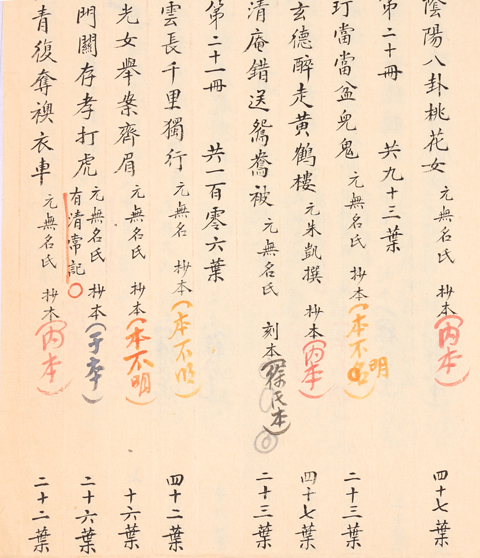 陰陽八卦桃花女 元無名氏 抄本(内本) 四十七葉
第二十冊 共九十三葉
玎當當盆兒鬼 元無名氏 抄本(本不明) 二十三葉
玄德醉走黃鶴樓 元朱凱撰 抄本(内本) 四十七葉
清庵錯送鴛鴦被 元無名氏 刻本(徐氏本) 二十三葉
第二十一冊 共一百零六葉
雲長千里獨行 元無名 抄本(本不明) 四十二葉
光女舉案齊眉 元無名氏 抄本(本不明) 十六葉
門關存孝打虎 元無名氏 抄本(于本) 二十六葉
有清常記
青復奪襖衣車 元無名氏 抄本(内本) 二十二葉